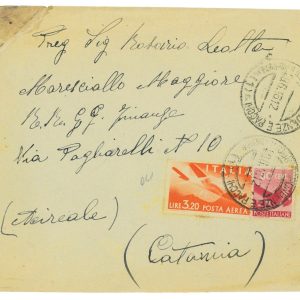 Preg Sig Rosario Leotta
Maresciallo Maggiore
R.R. G.F. Finanze
Via Pagliarelli N° 10
(Acireale)
(Catania)
ITALIA
LIRE 3.20 POSTA AEREA
POSTE ITALIANE